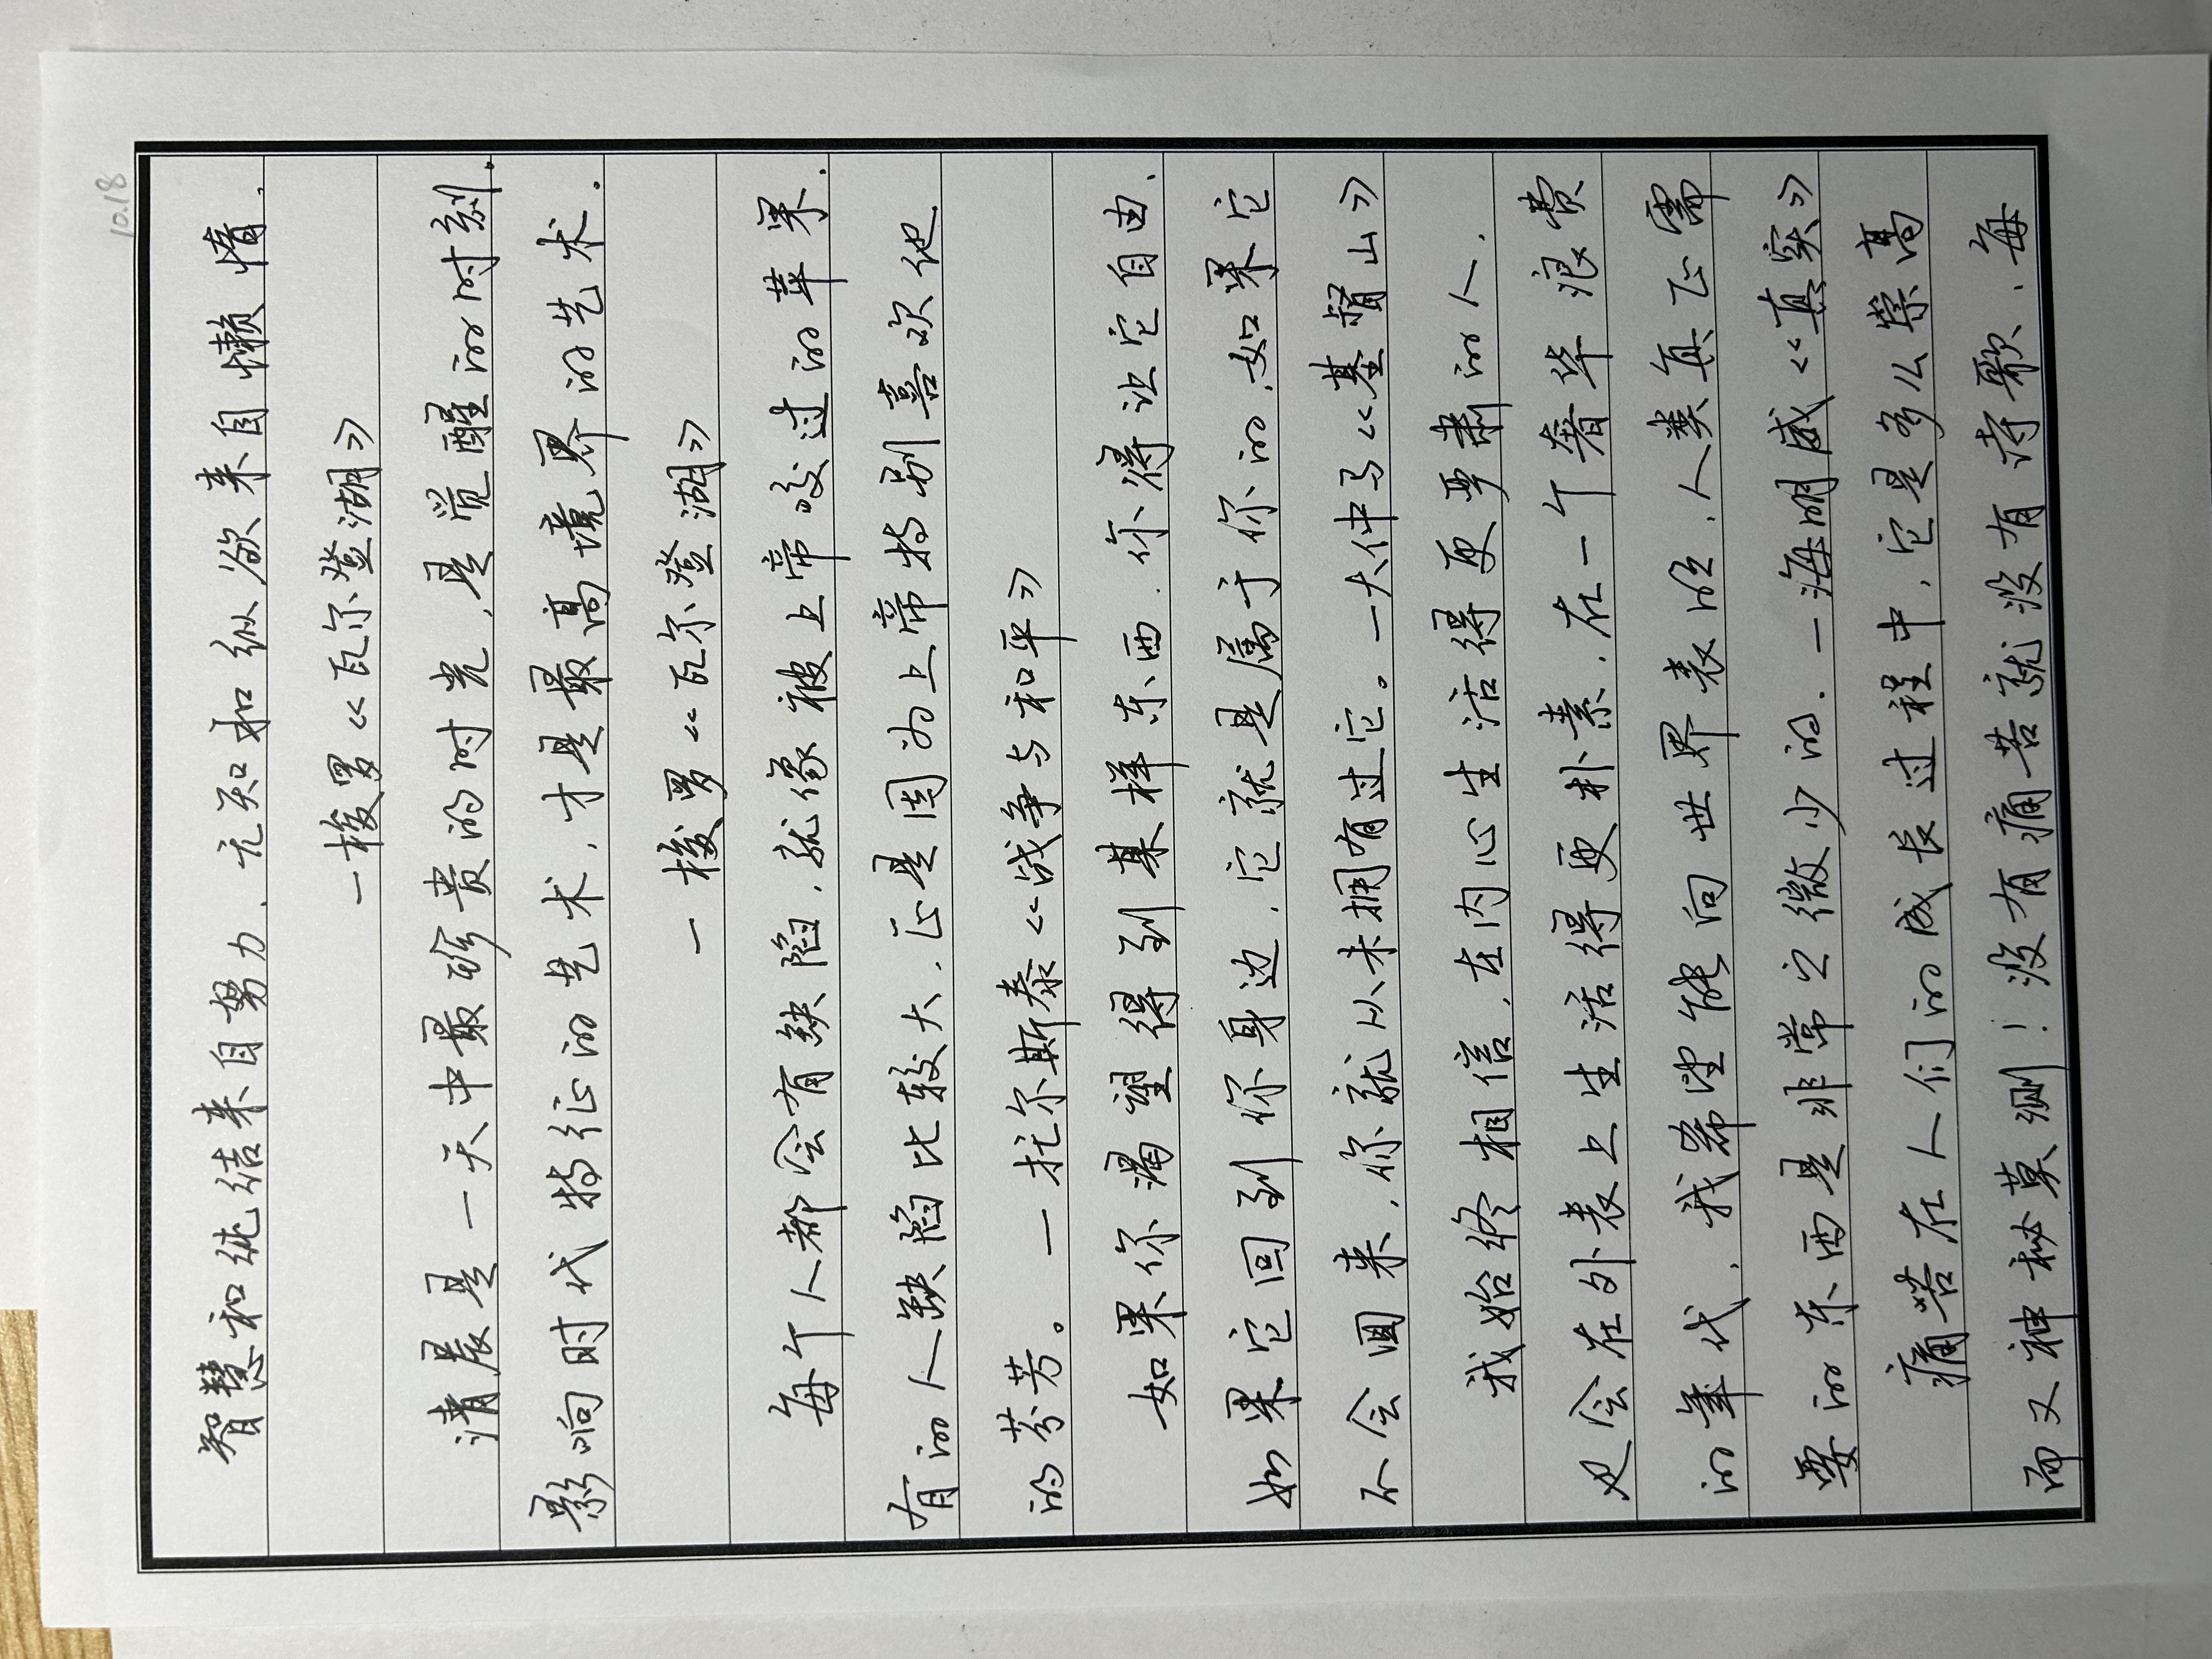 10.18
智慧和纯结来自努力.无知和纵欲来自懒惰.
一梭罗《瓦尔登湖》
清晨是一天中最珍贵的时光,是觉醒的时刻。
影响时代特征的艺术,才是最高境界的艺术.
一梭罗《瓦尔登湖》
每个人都会有缺陷,就像被上帝咬过的苹果.
有的人缺陷比较大.正是因为上帝特别喜欢他
的芬芳。一托尔斯泰《战争与和平》
如果你渴望得到某样东西.你得让它自由.
如果它回到你身边,它就是属于你的,如果它
不会回来,你就从未拥有过它。一大仲马《基督山》
我始终相信,在内心生活得更严肃的人.
也会在外表上生活得更朴素.在一个奢华浪费
的年代,我希望能向世界表明,人类真正需
要的东西是非常之微少的.一海明威《真实》
痛苦在人们的成长过程中,它是多么崇高
而又神秘莫测!没有痛苦就没有诗歌,每